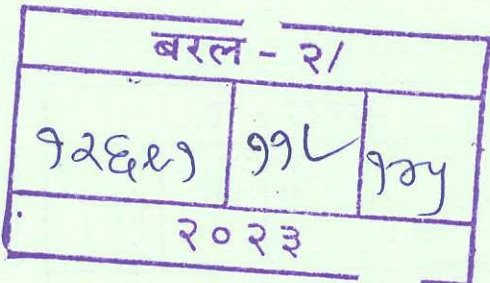 बरल - २/
१२६९१ ११८ १२५
२०२३